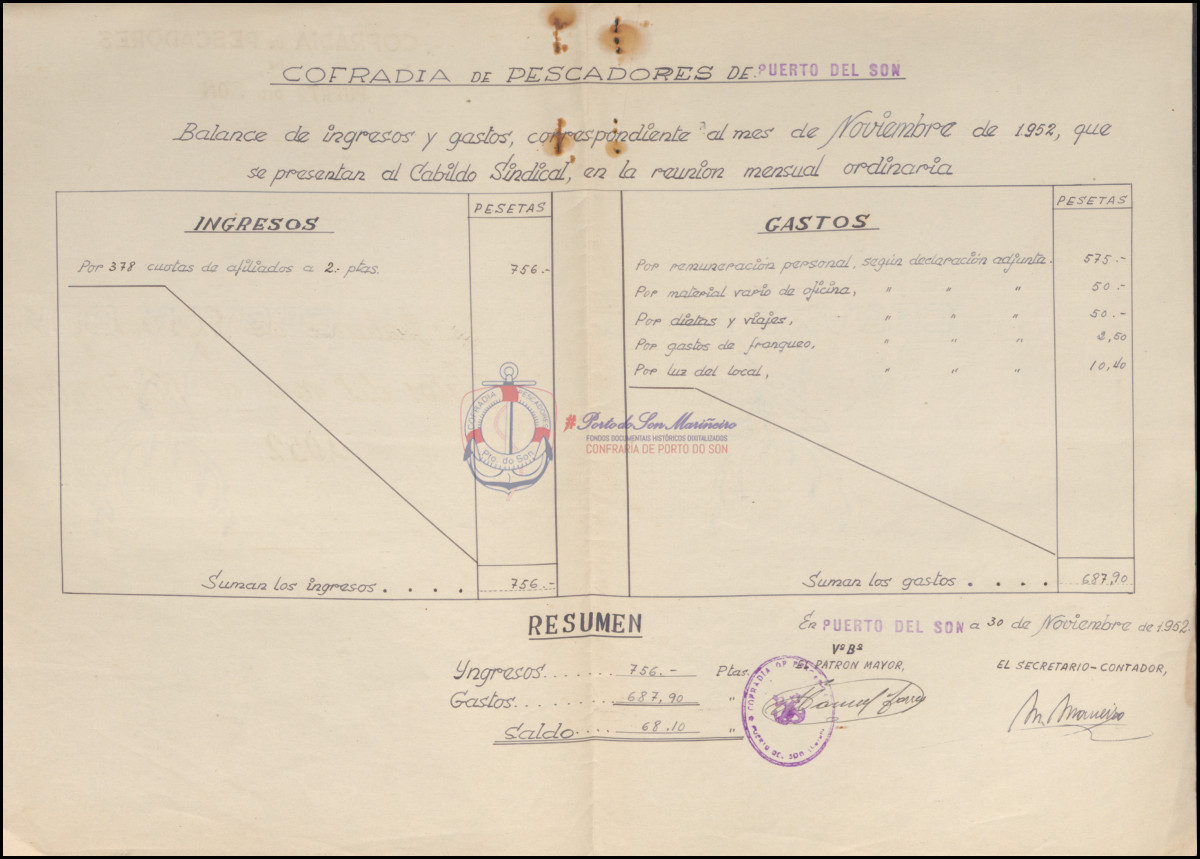 COFRADIA DE PESCADORES DE PUERTO DEL SON
Balance de ingresos y gastos, correspondiente al mes de Noviembre de 1952, que
se presentan al Cabildo Sindical, en la reunion mensual ordinaria
INGRESOS
PESETAS
Por 378 cuotas de afiliados a 2.- ptas.
756.-
Suman los ingresos . . . .
756.-
GASTOS
PESETAS
Por remuneración personal, según declaración adjunta.
575.-
Por material vario de oficina, " " "
50.-
Por dietas y viajes, " " "
50.-
Por gastos de franqueo, " " "
2,50
Por luz del local, " " "
10,40
Suman los gastos . . . .
687,90
COFRADIA PESCADORES
Pto. do Son
#Porto do Son Mariñeiro
FONDOS DOCUMENTAIS HISTÓRICOS DIXITALIZADOS
CONFRARÍA DE PORTO DO SON
RESUMEN
Yngresos....... 756.- Ptas.
Gastos......... 687,90 "
Saldo.... 68.10 "
En PUERTO DEL SON a 30 de Noviembre de 1.952.
VºBº
EL PATRON MAYOR,
EL SECRETARIO-CONTADOR,
COFRADIA DE
PUERTO DEL SON